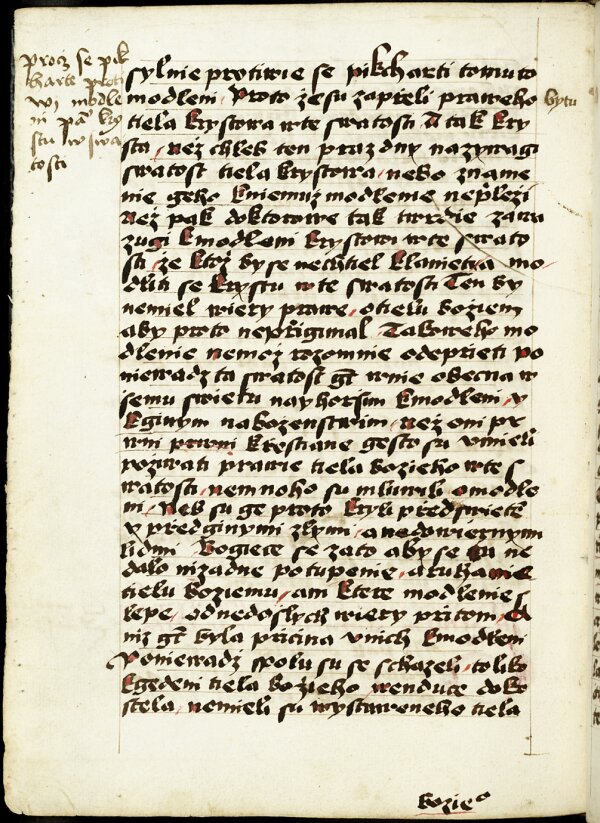 Procz se pik
harte proti
wi modle
ni pa kry
stu w swa
tosti
sylnie protiwie se pikharti tomuto
modleni Proto zesu zaprzeli praweho bytu
tiela krystowa w te swatosti A tak kry
sta nez chleb ten prazdny nazywagi
swatost tiela krystowa nebo zname
nie geho kniemuz modlenie neprzlezi
Nez pak doktorowe tak twrdie zawa
zugi kmodleni krystowi w te swato
sti ze ktoz by se nechtiel klanieti a mo
dliti se krystu w te swatosti Ten by
nemiel wiery prawe o tielu boziem
aby proto neprzigimal Takoweho mo
dlenie nemoz rozomnie odeprzieti po
niewadz ta swatost gt w nie obecna w
semu swietu nayhorsim kmodleni y
kginym nabozenstwim Nez oni pr
wni prwni krzestiane gesto su vmieli
pozivati prawie tiela bozieho w te s
watosti nemnoho su mluwili o modle
ni Neb su ge proto kryli przed swiete
y przed ginymi zlymi a nedowiernymi
lidmi Bogiece se za to aby se gu ne
dalo nizadne potupenie a ruhanie
tielu boziemu ani ktere modlenie s
lepe od nedoslych wiery przi tom A
niz gt byla przicina v nich kmodleni
Poniewadz spolu su se schazeli toliko
kgedeni tiela bozieho wenduce do ko
stela nemieli su wystaweneho tiela
bozieo